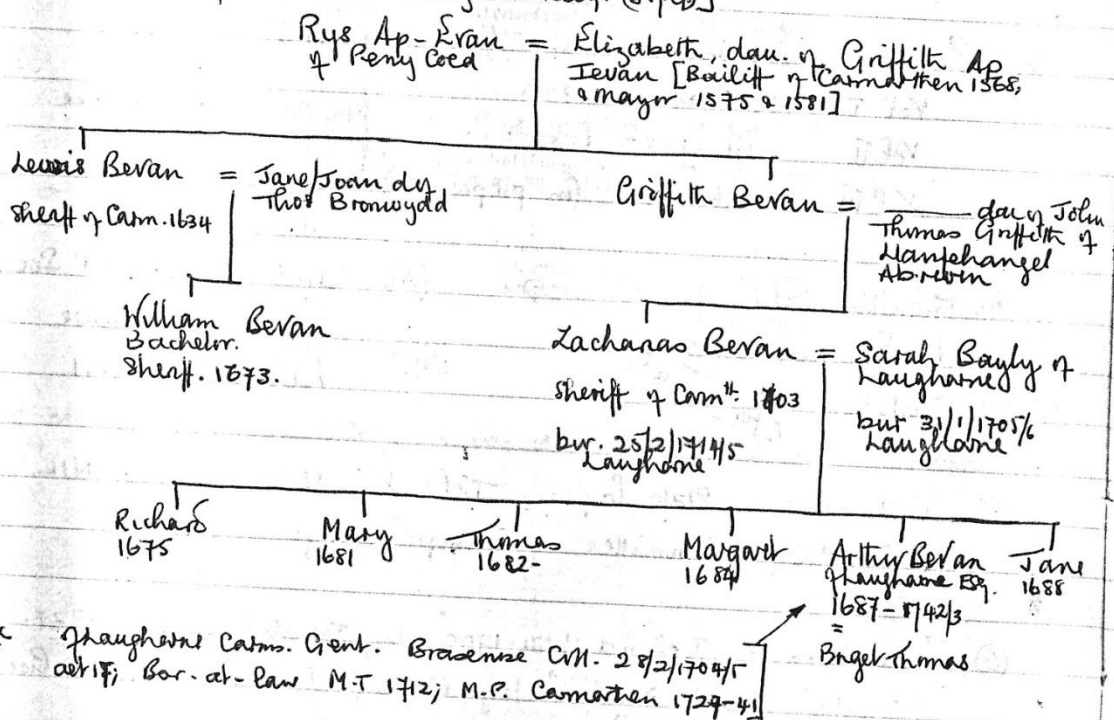 Rys Ap-Evan = Elizabeth, dau. of Griffith Ap
of Peny Coed
Ievan [Bailiff of Carmarthen 1568,
& mayor 1575 & 1581]
Lewis Bevan = Jane/Joan d of
Thos Bronwydd
sheriff of Carm. 1634
Griffith Bevan = ——— dau of John
Thomas Griffith of
Llanfehangel
Abercowin
William Bevan
Bachelor.
Sheriff. 1673.
Zacharias Bevan = Sarah Bayly of
Laugharne
sheriff of Carmth. 1703
bur 31/1/1705/6
Laugharne
bur. 25/2/1714/5
Laugharne
Richard
1675
Mary
1681
Thomas
1682-
Margaret
1684
Arthur Bevan
of Laugharne Esq.
1687-1742/3
=
Briget Thomas
Jane
1688
of Laugherne Carms. Gent. Brasenose Coll. 28/2/1704/5
aet 17; Bar-at-law M.T 1712; M.P. Camarthen 1729-41